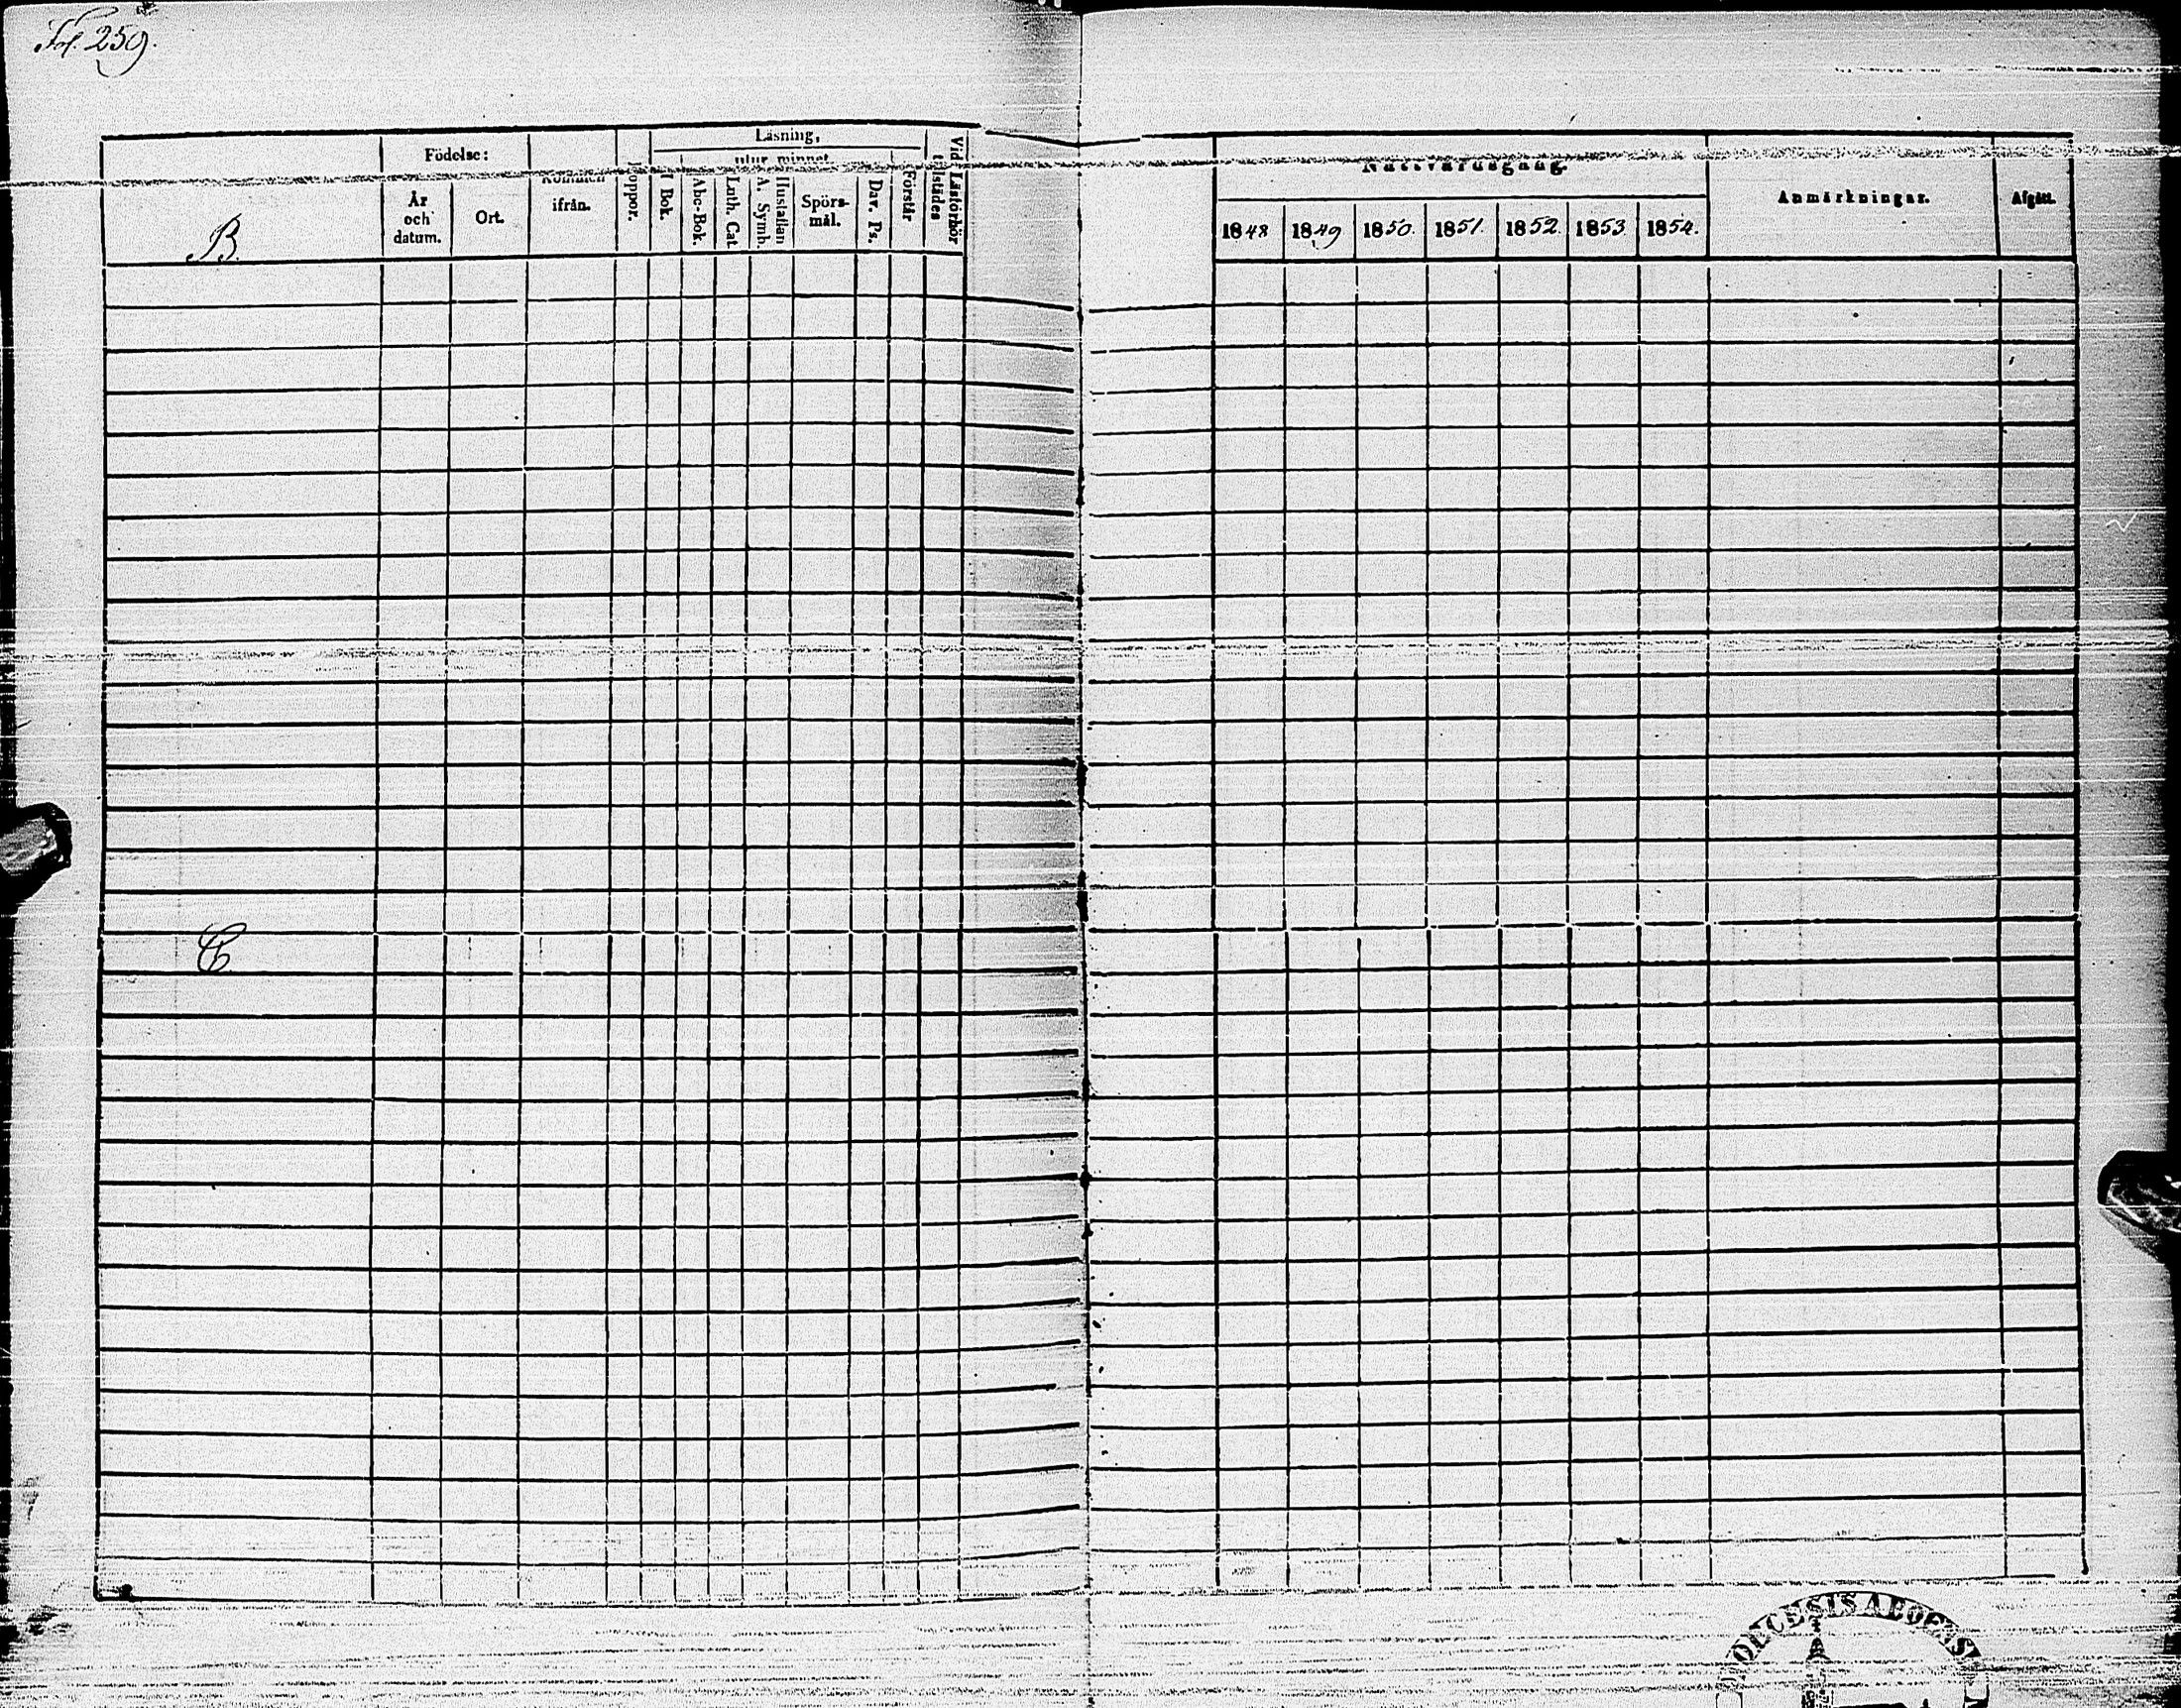 Fol. 259.
B.
Födelse:
År och datum.
Ort.
Kommen ifrån.
Koppor.
Läsning,
utur minnet
I Bok.
Abc-Bok.
Luth. Cat.
Hustaflan A. Symb.
Spörsmål.
Dav. Ps.
Förstår
Vid Läsförhör tillstädes
Nattvardsgång.
1848 1849 1850. 1851. 1852. 1853 1854.
Anmärkningar.
Afgått.
C.
DIOECESIS ABOENSIS